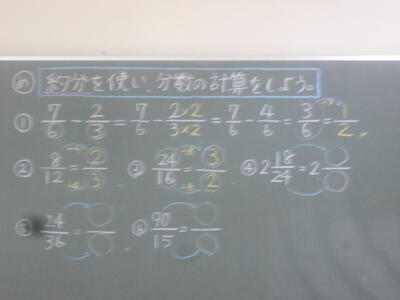 め 約分を使い、分数の計算をしよう。
① 7/6 - 2/3 = 7/6 - 2×2/3×2 = 7/6 - 4/6 = 3/6 = 1/2
② 8/12 = 2/3 ③ 24/16 = 3/2 ④ 2 18/24 = 2
⑤ 24/36 = ⑥ 90/15 =